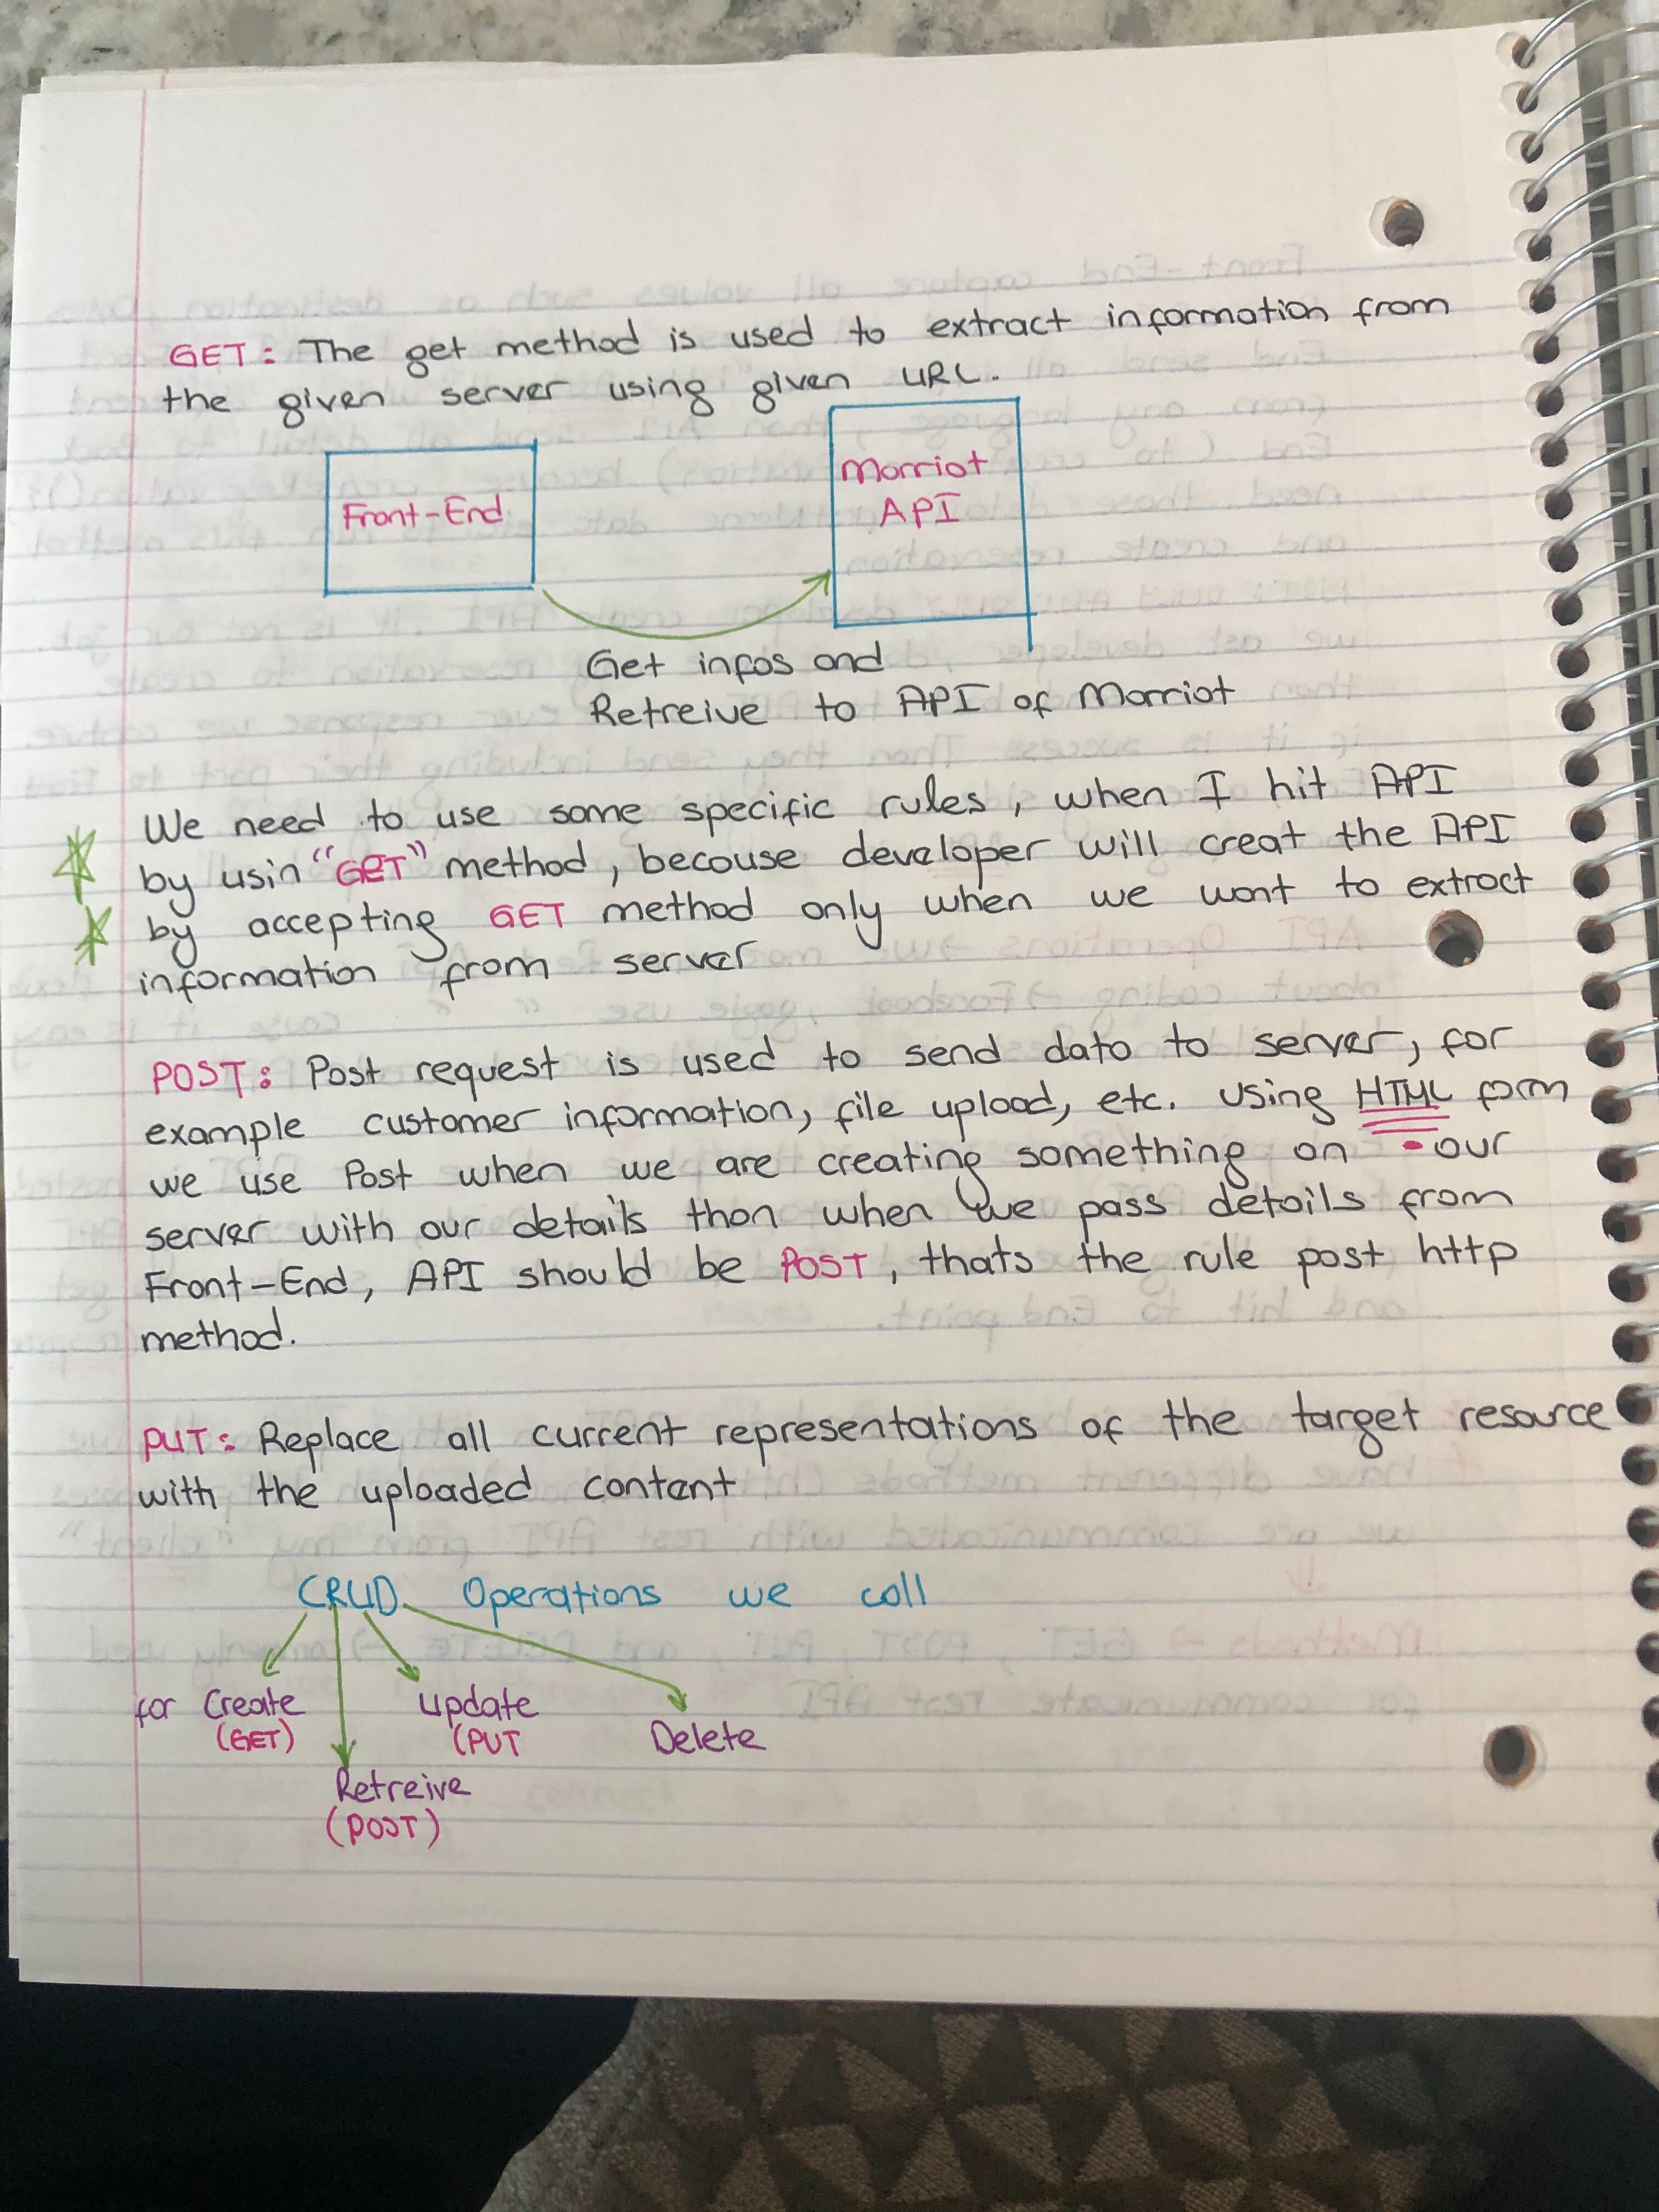 GET: The get method is used to extract information from
the given server using given URL.
Front-End
Morriot
API
Get infos and
Retreive to API of Morriot
We need to use some specific rules, when I hit API
by usin "GET" method, becouse developer will creat the API
by accepting GET method only when we wont to extract
information from server
POST: Post request is used to send data to server, for
example customer information, file upload, etc. using HTML form
we use Post when we are creating something on our
server with our details than when we pass details from
Front-End, API should be POST, thats the rule post http
method.
PUT: Replace all current representations of the target resource
with the uploaded content
CRUD Operations we call
for Create
(GET)
Update
(PUT
Delete
Retreive
(POST)